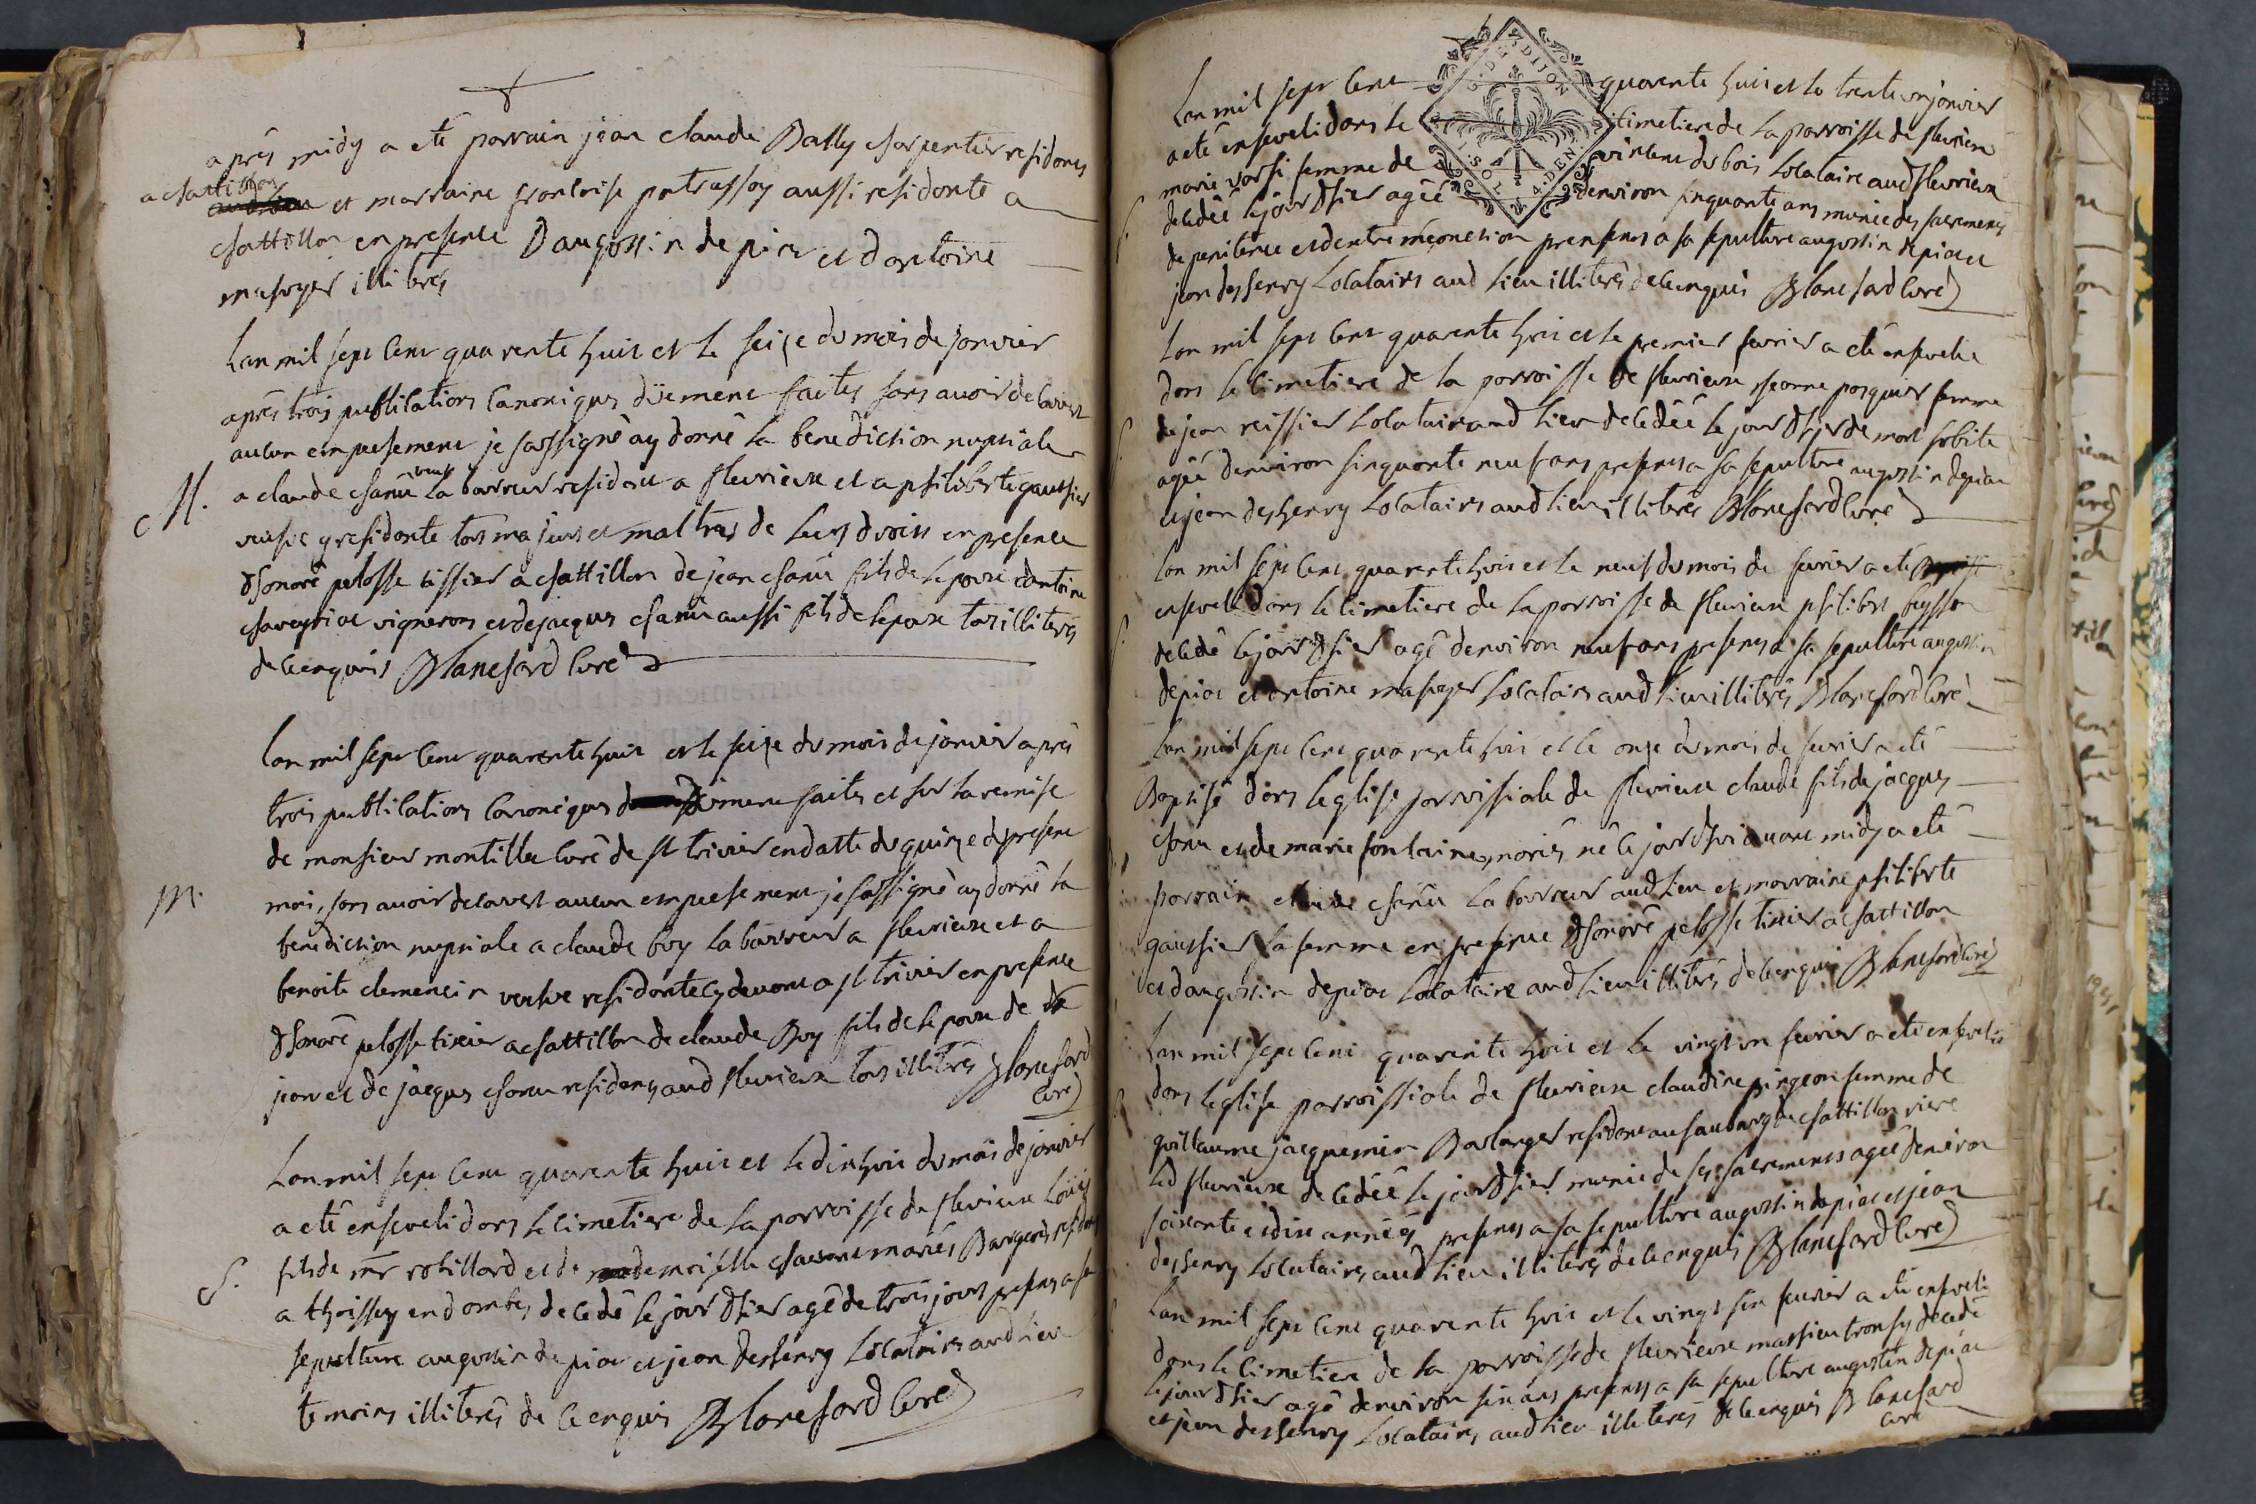 après midy a eté parrain jean claude Bally charpentier residents
a chattillon et marraine francoise patrassoy aussi residante a
chattillon en presence D'augustin depiat et d'antoine
masoyer illiterés
Lan mil sept cent quarente huit et le seize du mois de janvier
après trois publications canoniques düement faites sans avoir decouvert
aucun empechement je sassigné ay donné la benediction nuptiale
M.
a claude chanu veuf labourreur resident a fleurieux et a philiberte gautier
veufve y residante tous majeurs et maîtres de leurs droits en presence
d'honoré pelosse tissier a chattillon de jean chanu fils de lepoux d'antoine
chaveyriat vigneron et de jacques chanu aussi fils de lepoux tous illiterés
de ce enquis Blanchard curé
Lan mil sept cent quarente huit et le seize du mois de janvier après
trois publications canoniques düement faites et sur la remise
de monsieur montillet curé de st trivier en datte du quinze du present
M.
mois, sans avoir decouvert aucun empechement je sassigné ay donné la
benediction nuptiale a claude buy labourreur a fleurieux et a
benoite clemencin veufve residante cy devant a st trivier en presence
d'honoré pelosse tixier a chattillon de claude Buy fils de lepoux de
jean et de jacques chanu residents aud fleurieux tous illiterés Blanchard
curé
Lan mil sept cent quarente huit et le dixhuit du mois de janvier
a eté enseveli dans le cimetiere de la parroisse de fleurieux Loüis
S.
fils de mr robillard et de demoiselle chavant mariés Bourgeois residants
a thoissey en dombes decedé le jour d'hier agé de trois jours presents a sa
sepulture augustin depiat et jean deshenry Locataires aud lieu
temoins illiterés de ce enquis Blanchard curé
G. DE DIJON
1 SOL 4 DEN
Lan mil sept cent quarente huit et le trente un janvier
a eté enseveli dans le cimetiere de la parroisse de fleurieux
marie vorsi femme de vincent du bois Locataire aud fleurieux
S.
decedée le jour d'hier agée denviron sinquante ans munie des sacrements
de penitence et dextreme onction presents a sa sepulture augustin depiat et
jean deshenry Locataires aud lieu illiterés de ce enquis Blanchard curé
Lan mil sept cent quarente huit et le premier fevrier a eté ensevelie
dans le cimetiere de la parroisse de fleurieux jeanne pasquier femme
S.
de jean reissier Locataire aud lieu decedée le jour d'hier de mort subite
agée denviron sinquante neuf ans presents a sa sepulture augustin depiat
et jean deshenry Locataires aud lieu illiterés Blanchard curé
Lan mil sept cent quarente huit et le neuf du mois de fevrier a eté
enseveli dans le cimetiere de la parroisse de fleurieux philibert buysson
S.
decedé le jour d'hier agé denviron neuf ans presents a sa sepulture augustin
depiat et antoine masoyer Locataires aud lieu illiterés Blanchard curé
Lan mil sept cent quarente huit et le onze du mois de fevrier a eté
Baptisé dans leglise parroissiale de fleurieux claude fils de jacques
chanu et de marie fontaine, mariés né le jour d'hui avant midy a eté
parrain claude chanu labourreur aud lieu et marraine philiberte
gautier sa femme en presence d'honoré pelosse tixier a chattillon
et d'augustin depiat Locataire aud lieu illiterés de ce enquis Blanchard curé
Lan mil sept cent quarente huit et le vingt un fevrier a eté ensevelie
dans leglise parroissiale de fleurieux claudine pingeon femme de
guillaume jacquemin Boulanger resident au fauxbourg de chattillon riere
led fleurieux decedée le jour d'hier munie de ses sacrements agée denviron
soixante et dix années presents a sa sepulture augustin depiat et jean
deshenry Locataires, aud lieu illiterés de ce enquis Blanchard curé
Lan mil sept cent quarente huit et le vingt six fevrier a eté enseveli
dans le cimetiere de la parroisse de fleurieux mathieu tronfy decedé
le jour d'hier agé denviron six ans presents a sa sepulture augustin depiat
et jean deshenry Locataires aud lieu illiterés de ce enquis Blanchard
curé